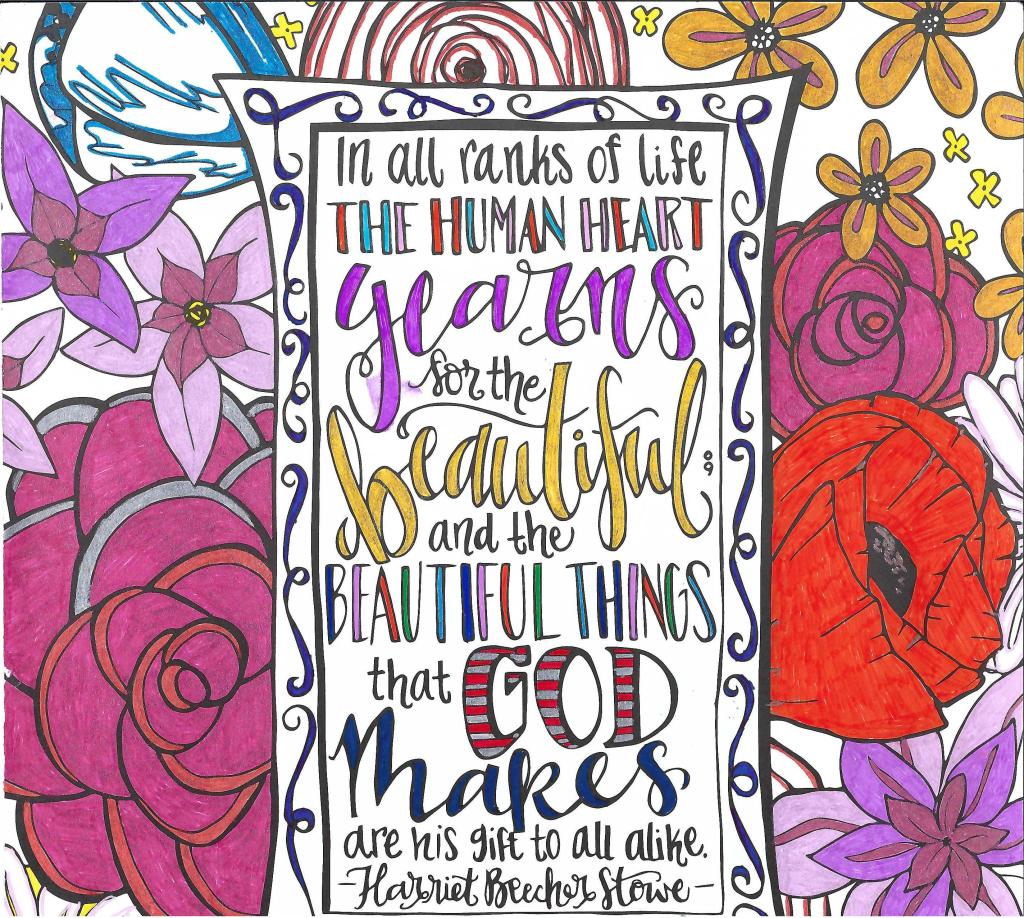 In all ranks of life
THE HUMAN HEART
yearns
for the
beautiful;
and the
BEAUTIFUL THINGS
that GOD
Makes
are his gift to all alike.
-Harriet Beecher Stowe-